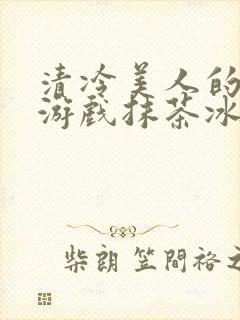 清冷美人的
游戏抹茶冰
柴朗 笠間裕之